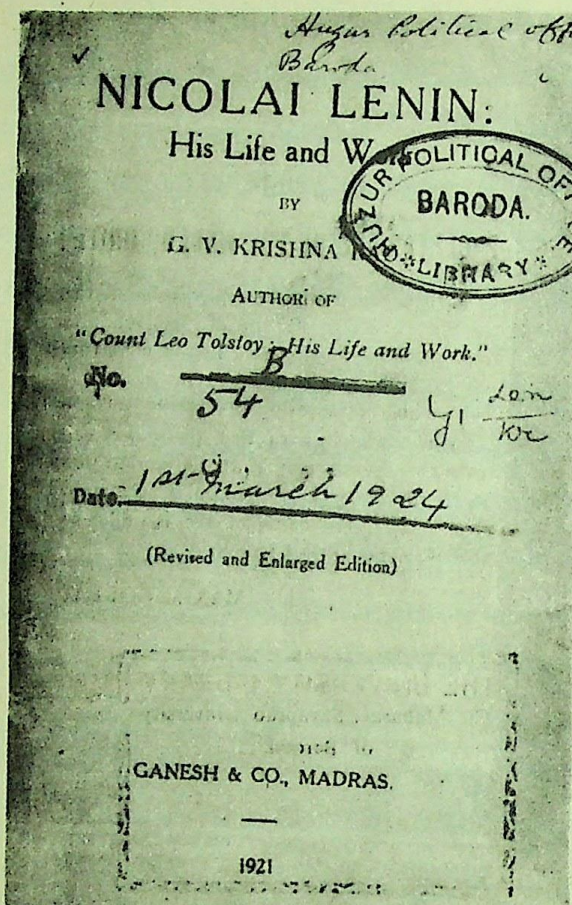 Huzur Political Off
Baroda
NICOLAI LENIN:
His Life and Work
HUZUR POLITICAL OFFICE
BARODA.
LIBRARY
BY
G. V. KRISHNA
AUTHOR OF
"Count Leo Tolstoy: His Life and Work."
No. B
54
Date. 1st March 1924
(Revised and Enlarged Edition)
GANESH & CO., MADRAS.
1921